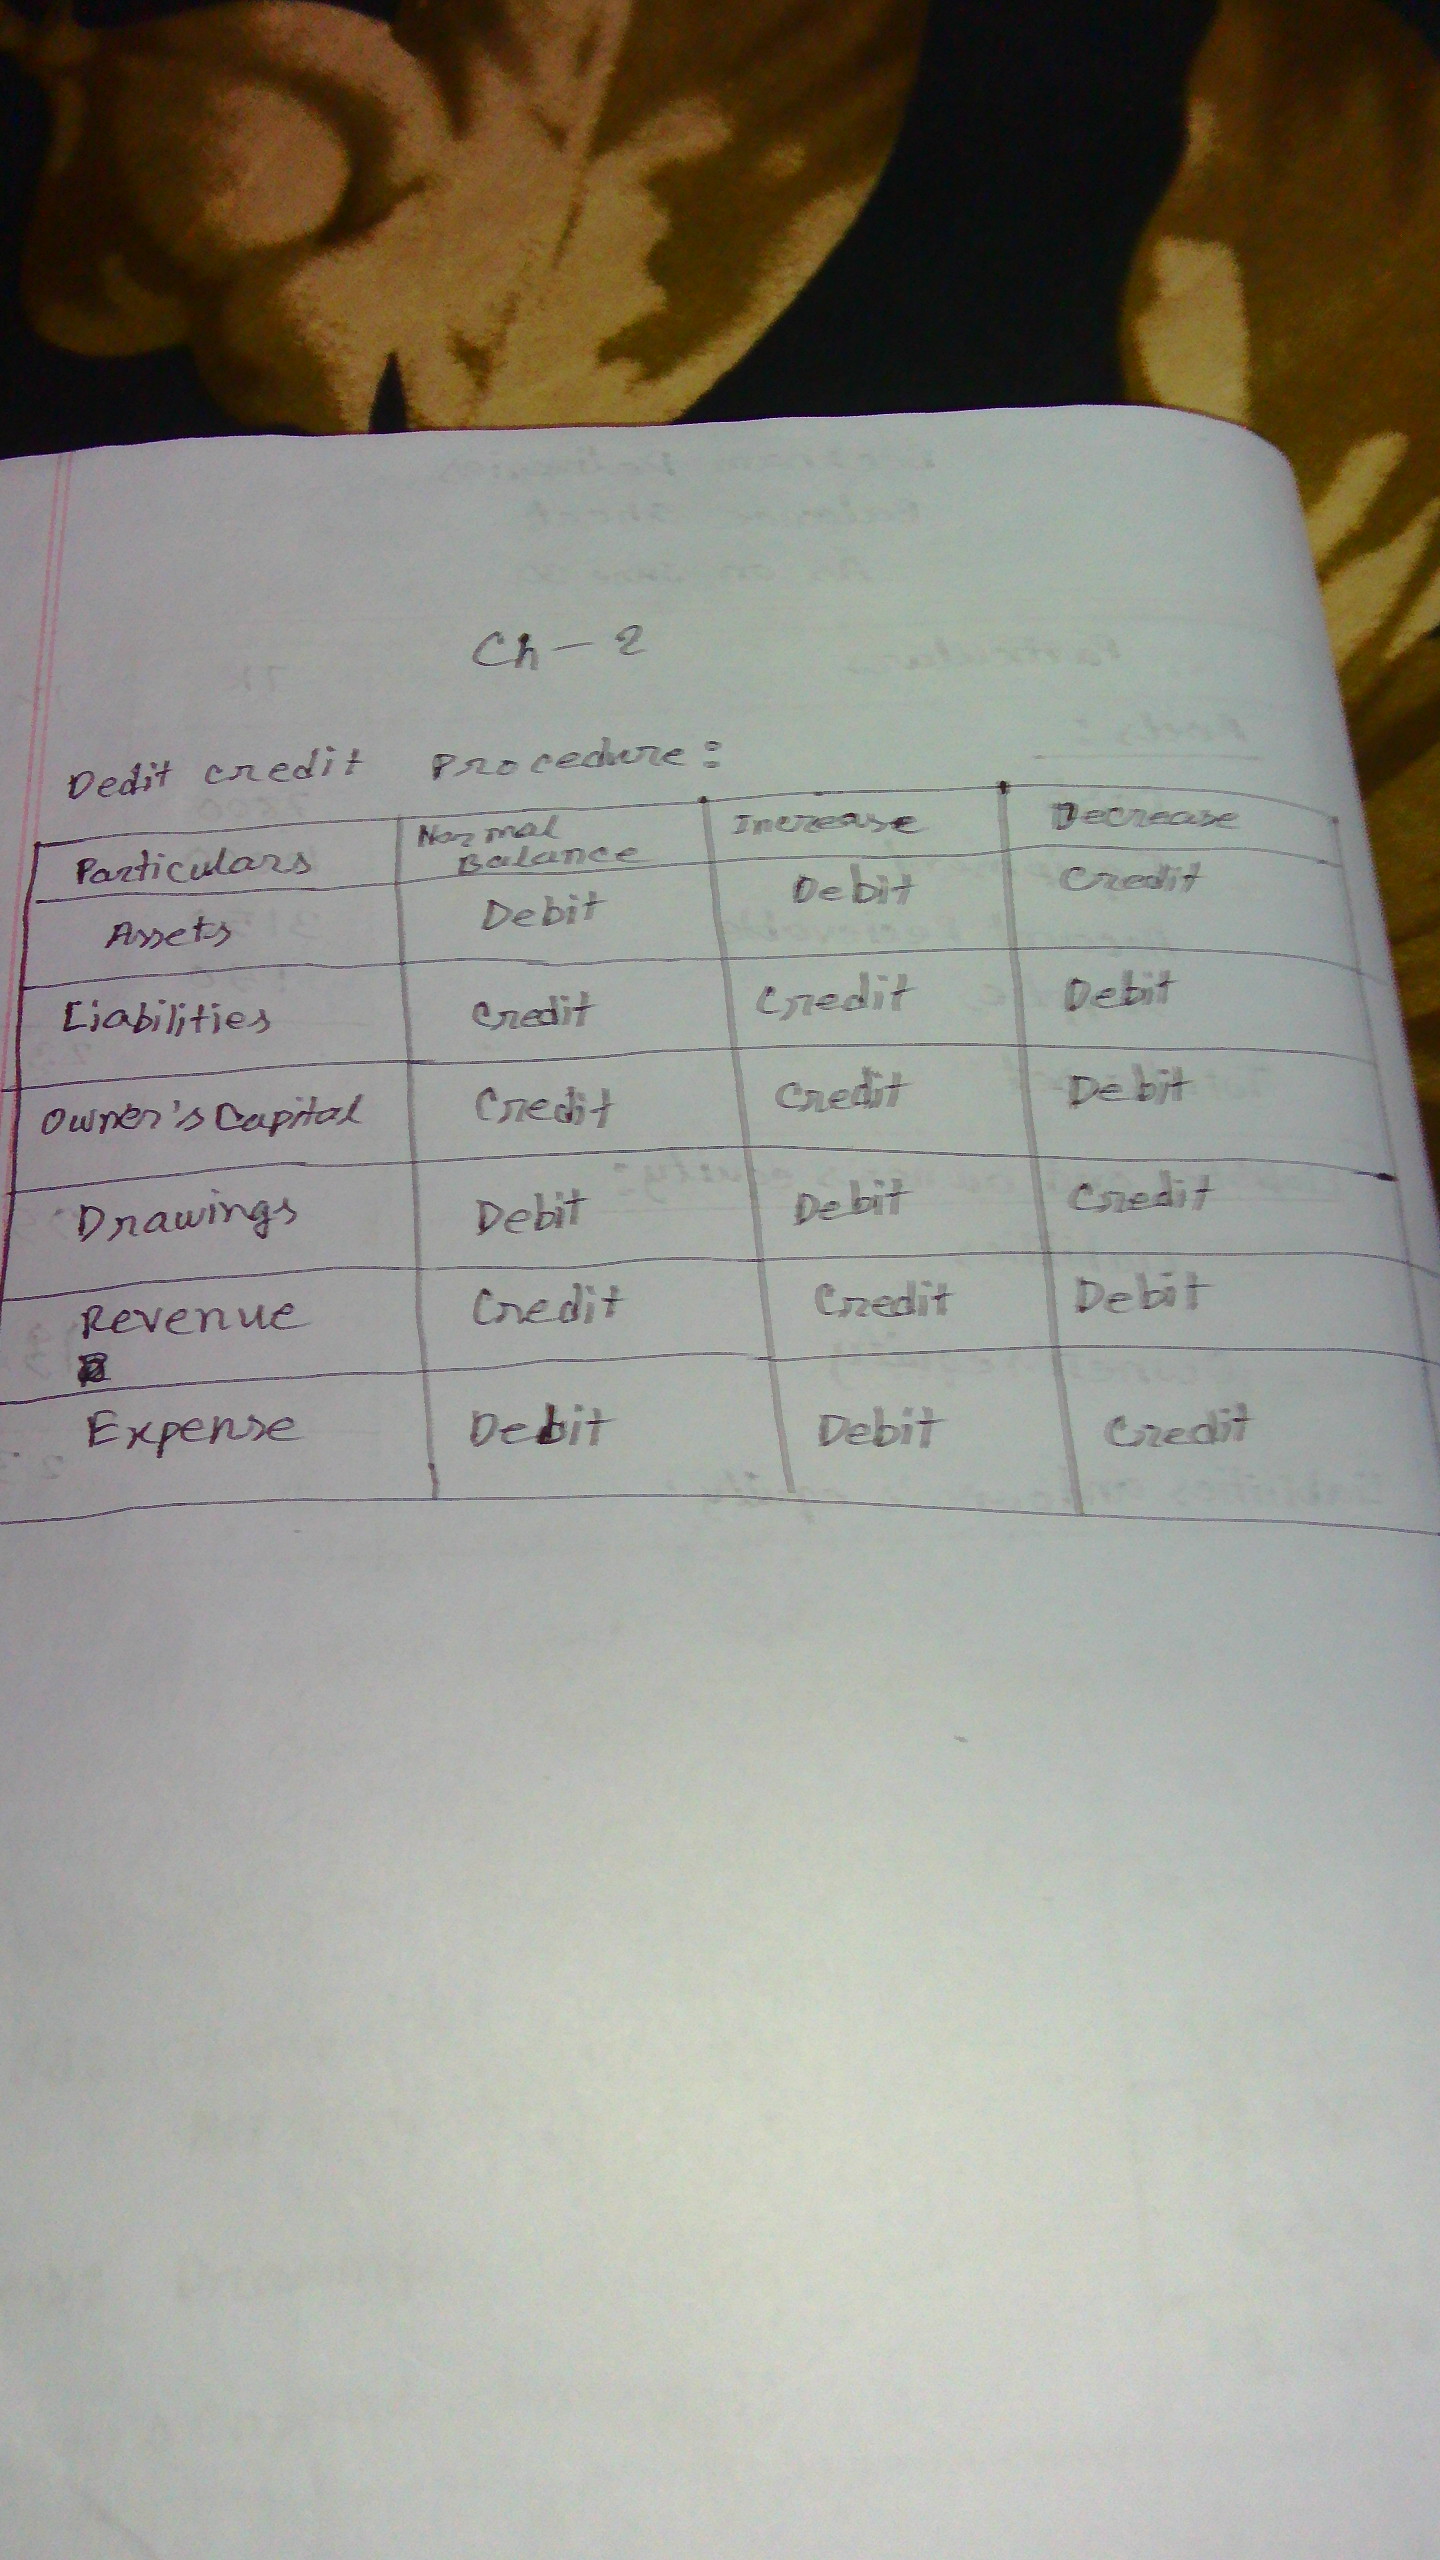 Ch - 2
Dedit credit Procedure:
Particulars Normal Balance Increase Decrease
Assets Debit Debit Credit
Liabilities Credit Credit Debit
Owner's Capital Credit Credit Debit
Drawings Debit Debit Credit
Revenue Credit Credit Debit
Expense Debit Debit Credit